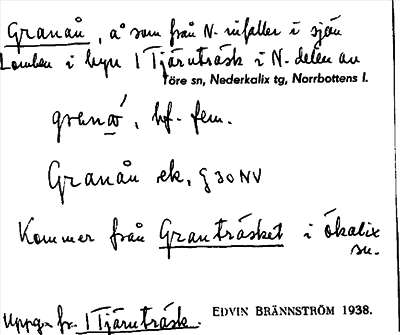 Granån, å som från N. infaller i sjön
Lomben i byn 1 Tjärnträsk i N. delen av
Töre sn, Nederkalix tg, Norrbottens l.
bf. fem.
Granån ek. § 30 NV
Kommer från Granträsket i Ökalix
sn.
Uppg. fr. 1 Tjärnträsk.
EDVIN BRÄNNSTRÖM 1938.